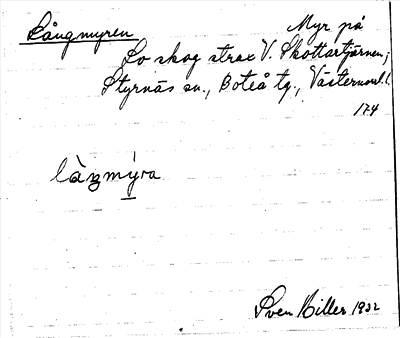 Långmyren Myr på
Lo skog strax V. Skottartjärnen,
Styrnäs sn., Boteå tg., Västernorrl. l.
174
làŋmýra
Sven Hiller 1932